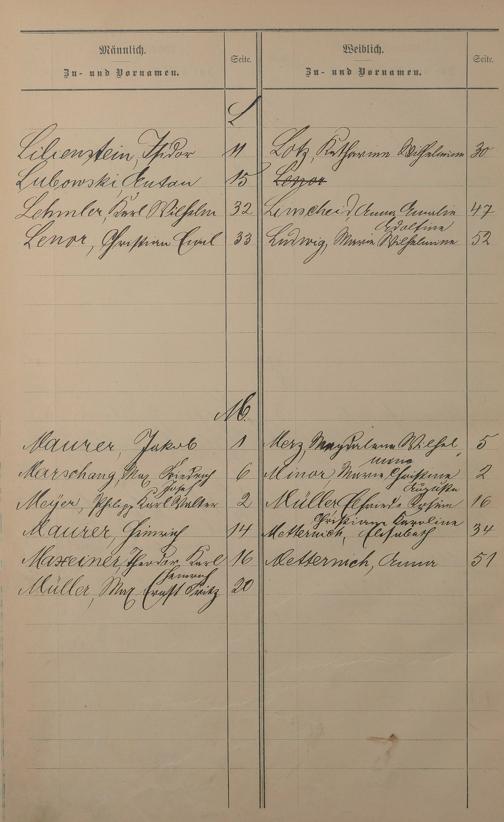 Männlich.
Zu- und Vornamen.
Seite.
Weiblich.
Zu- und Vornamen.
Seite.
L
Lilienstein, Isidor 11
Lubowski Anton 15
Lehmler, Karl Wilhelm 32
Lenor, Christian Emil 33
Lotz, Katharine Wilhelmine 30
Lenor
Linscheid Anna Emilie 47
Adolfine
Ludwig, Marie Wilhelmine 52
M.
Maurer, Jakob 1
Marschang, Max Friedrich 6
Josef
Meyer, Philipp Karl Walter 2
Maurer, Heinrich 14
Maxeiner, Theodor Karl 16
Heinrich
Müller, Max Ernst Fritz 20
Merz, Magdalena Wilhel 5
mine
Minor, Marie Christine 2
Auguste
Müller Elfriede 16
Christiane Caroline
Metternich, Elisabeth 34
Metternich, Anna 51